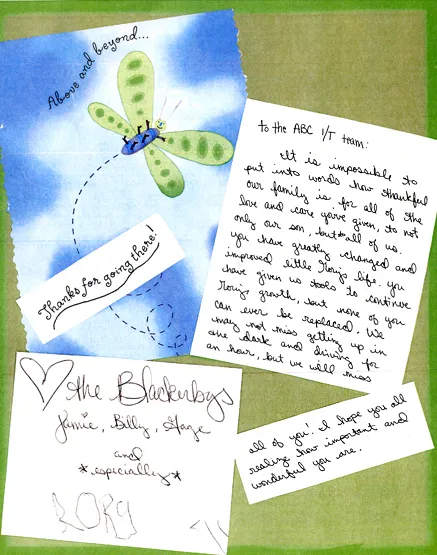 Above and beyond...
Thanks for going there!
to the ABC I/T team:
It is impossible to
put into words how thankful
our family is for all of the
love and care you've given, to not
only our son, but all of us.
you have greatly changed and
improved little Rory's life. you
have given us tools to continue
Rory's growth, but none of you
can ever be replaced. We
may not miss getting up in
the dark and driving for
an hour, but we will miss
all of you! I hope you all
realize how important and
wonderful you are.
the Blackerbys
Jamie, Billy, Gage
and
*especially*
RORY